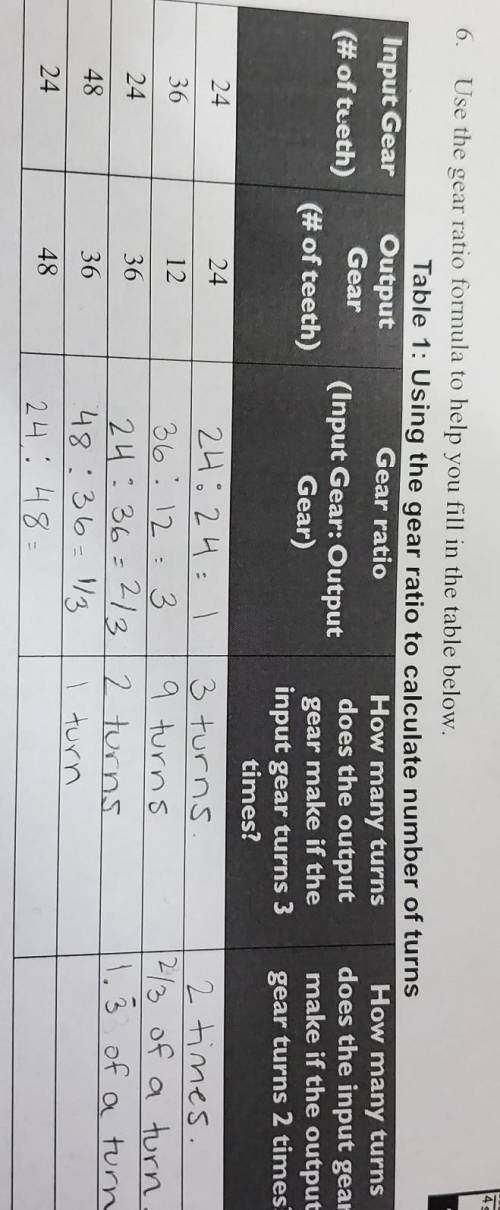 6. Use the gear ratio formula to help you fill in the table below.
Table 1: Using the gear ratio to calculate number of turns
Input Gear (# of teeth)
Output Gear (# of teeth)
Gear ratio (Input Gear: Output Gear)
How many turns does the output gear make if the input gear turns 3 times?
How many turns does the input gear make if the output gear turns 2 times?
24 24 24:24 = 1 3 turns. 2 times.
36 12 36:12 = 3 9 turns 2/3 of a turn.
24 36 24:36 = 2/3 2 turns 1.3 of a turn
48 36 48:36 = 1/3 1 turn
24 48 24:48 =